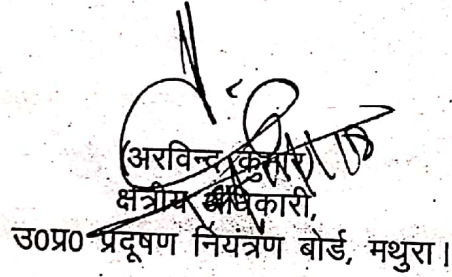 (अरविन्द कुमार)
क्षेत्रीय अधिकारी,
उ०प्र० प्रदूषण नियंत्रण बोर्ड, मथुरा।